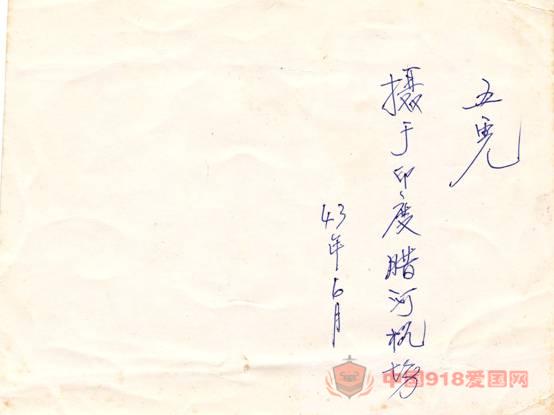 五虎
摄于印度腊河机场
43年6月
中国918爱国网